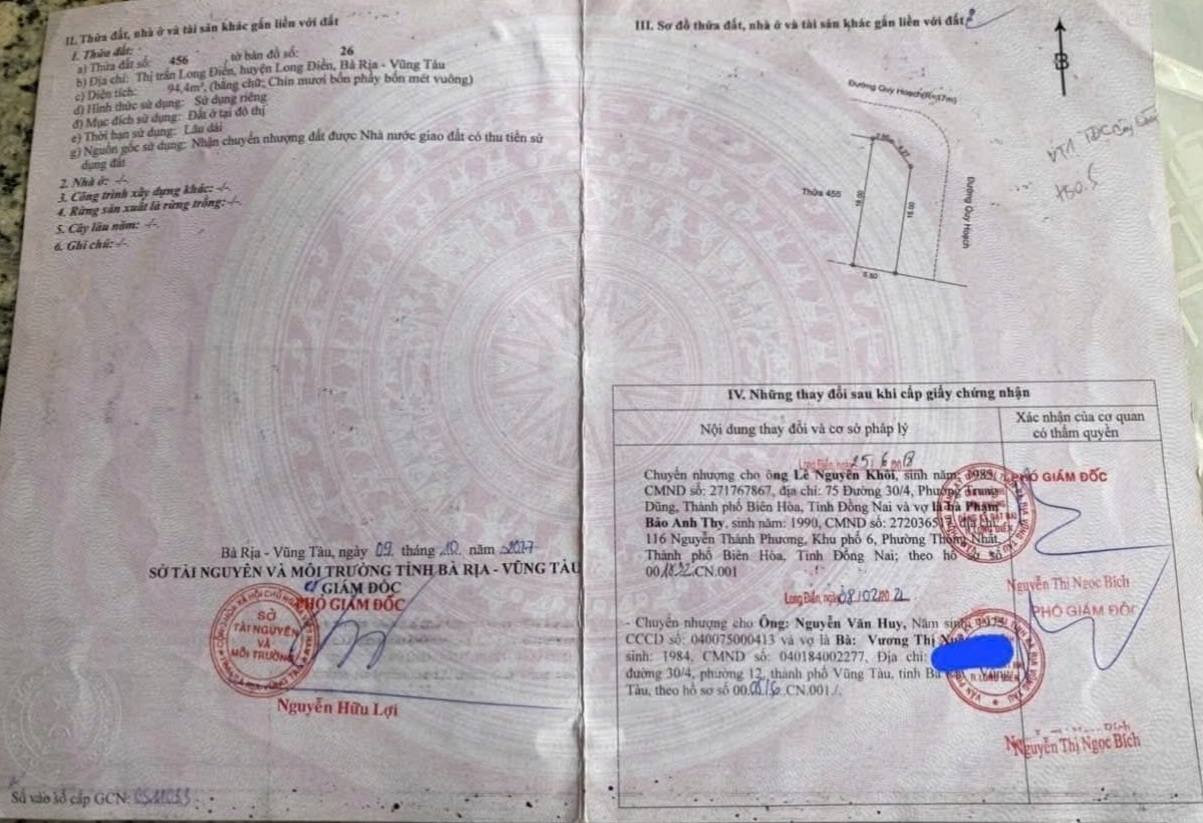 II. Thửa đất, nhà ở và tài sản khác gắn liền với đất
1. Thửa đất:
a) Thửa đất số: 456 , tờ bản đồ số: 26
b) Địa chỉ: Thị trấn Long Điền, huyện Long Điền, Bà Rịa - Vũng Tàu
c) Diện tích: 94,4m², (bằng chữ: Chín mươi bốn phẩy bốn mét vuông)
d) Hình thức sử dụng: Sử dụng riêng
đ) Mục đích sử dụng: Đất ở tại đô thị
e) Thời hạn sử dụng: Lâu dài
g) Nguồn gốc sử dụng: Nhận chuyển nhượng đất được Nhà nước giao đất có thu tiền sử
dụng đất
2. Nhà ở: -/-
3. Công trình xây dựng khác: -/-
4. Rừng sản xuất là rừng trồng: -/-
5. Cây lâu năm: -/-
6. Ghi chú: -/-
Bà Rịa - Vũng Tàu, ngày 09 tháng năm 2017
SỞ TÀI NGUYÊN VÀ MÔI TRƯỜNG TỈNH BÀ RỊA - VŨNG TÀU
GIÁM ĐỐC
PHÓ GIÁM ĐỐC
SỞ
TÀI NGUYÊN
VÀ
MÔI TRƯỜNG
Nguyễn Hữu Lợi
Số vào sổ cấp GCN:
III. Sơ đồ thửa đất, nhà ở và tài sản khác gắn liền với đất
B
Đường Quy Hoạch
Thửa 455
18.00
15.00
Đường Quy Hoạch
VT1 TĐC
IV. Những thay đổi sau khi cấp giấy chứng nhận
Nội dung thay đổi và cơ sở pháp lý
Xác nhận của cơ quan
có thẩm quyền
Long Điền, ngày 25/6/2018
Chuyển nhượng cho ông Lê Nguyên Khôi, sinh năm: 1985,
CMND số: 271767867, địa chỉ: 75 Đường 30/4, Phường Trung
Dũng, Thành phố Biên Hòa, Tỉnh Đồng Nai và vợ là bà Phạm
Bảo Anh Thy, sinh năm: 1990, CMND số: địa chỉ:
116 Nguyễn Thành Phương, Khu phố 6, Phường Thống Nhất,
Thành phố Biên Hòa, Tỉnh Đồng Nai; theo hồ sơ số
.CN.001
PHÓ GIÁM ĐỐC
Nguyễn Thị Ngọc Bích
Long Điền, ngày 08/02/20
- Chuyển nhượng cho Ông: Nguyễn Văn Huy, Năm sinh: 1975,
CCCD số: 040075000413 và vợ là Bà: Vương Thị
sinh: 1984, CMND số: 040184002277, Địa chỉ:
đường 30/4, phường 12, thành phố Vũng Tàu, tỉnh Bà Rịa - Vũng
Tàu, theo hồ sơ số .CN.001./.
PHÓ GIÁM ĐỐC
Nguyễn Thị Ngọc Bích